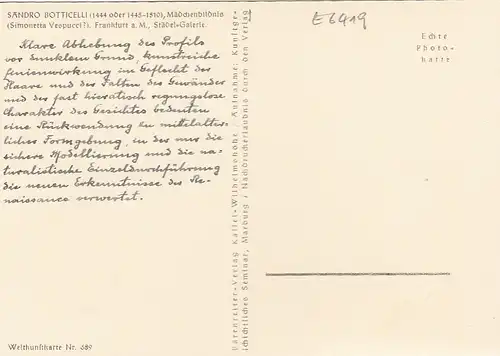 SANDRO BOTTICELLI (1444 oder 1445-1510), Mädchenbildnis
(Simonetta Vespucci?). Frankfurt a. M., Städel-Galerie.
Klare Abhebung des Profils
vor dunklem Grund, kunstreiche
Linienwirkung im Geflecht der
Haare und der Falten des Gewandes
und der fast hieratisch regungslose
Charakter des Gesichtes bedeuten
eine Rückwendung zu mittelalter-
licher Formgebung, in der nur die
sichere Modellierung und die na-
turalistische Einzeldurchführung
die neuen Erkenntnisse der Re-
naissance verwertet.
Weltkunstkarte Nr. 689
Bärenreiter-Verlag Kassel-Wilhelmshöhe. Aufnahme: Kunstge-
schichtliches Seminar, Marburg / Nachdruckerlaubnis durch den Verlag
E6419
Echte
Photo-
karte